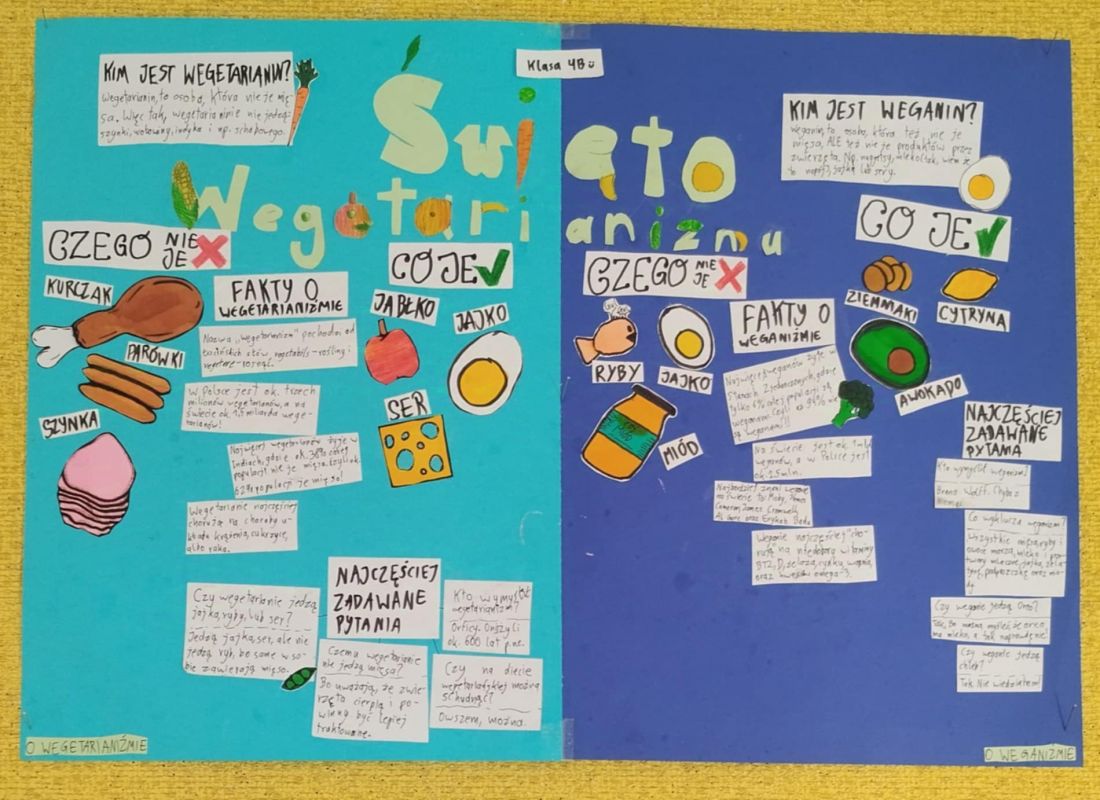 Klasa 4B
Święto
Wegetarianizmu
KIM JEST WEGETARIANIN?
Wegetarianin, to osoba, która nie je mię-
sa. Więc tak, wegetarianie nie jedzą
szynki, wołowiny, indyka i np. schabowego.
CZEGO NIE JE
KURCZAK
PARÓWKI
SZYNKA
FAKTY O
WEGETARIANIŹMIE
Nazwa "wegetarianizm" pochodzi od
słów, vegetabilis-roślinny i
W Polsce jest ok. trzech
milionów wegetarianów, a na
świecie ok. 1,5 miliarda wege-
tarianów!
Najwięcej wegetarianów żyje w
Indiach, gdzie ok. 38% całej
populacji nie je mięsa, czyli ok.
62% populacji je mięso!
Wegetarianie najczęściej
chorują na choroby u-
kładu krążenia, cukrzycę,
albo raka.
CO JE
JABŁKO
JAJKO
SER
NAJCZĘŚCIEJ
ZADAWANE
PYTANIA
Czy wegetarianie jedzą
jajka, ryby, lub ser?
Jedzą jajka, ser, ale nie
jedzą ryb, bo same w so-
bie zawierają mięso.
Czemu wegetarianie
nie jedzą mięsa?
Bo uważają, że zwie-
rzęta cierpią i po-
winny być lepiej
traktowane.
Kto wymyślił
wegetarianizm?
Orficy. Oni żyli
ok. 600 lat p.n.e.
Czy na diecie
wegetariańskiej można
schudnąć?
Owszem, można.
O WEGETARIANIŹMIE
KIM JEST WEGANIN?
Weganin, to osoba, która też nie je
mięsa, ALE też nie je produktów przez
zwierzęta. Np. nuggetsy, mleko (tak, wiem że
to napój), jajka lub sery.
CZEGO NIE JE
RYBY
JAJKO
MIÓD
FAKTY O
WEGANIŹMIE
Najwięcej weganów żyje w
Stanach Zjednoczonych, gdzie
tylko 6% całej populacji są
weganami. Czyli ok. 94% nie
są weganami!!
Na świecie jest ok. 1 mld
weganów, a w Polsce jest
ok. 2,5 mln.
Najbardziej znani weganie
na świecie to: Moby, James
Cameron, James Cromwell,
Al Gore oraz Erykah Badu
Weganie najczęściej "cho-
rują" na niedobory witaminy
B12, D, żelaza, cynku, wapnia,
oraz kwasów omega-3.
CO JE
ZIEMNIAKI
CYTRYNA
AWOKADO
NAJCZĘŚCIEJ
ZADAWANE
PYTANIA
Kto wymyślił weganizm?
Bruno Wolff. Chyba z
Niemiec
Co wyklucza weganizm?
Wszystkie mięsa, ryby i
owoce morza, mleko i prze-
twory mleczne, jajka, żela-
tynę, podpuszczkę oraz mió-
d
Czy weganie jedzą Oreo?
Tak, bo można myśleć, że oreo,
ma mleko, a tak naprawdę nie!
Czy weganie jedzą
chleb?
Tak. Nie wiedziałam!
O WEGANIŹMIE